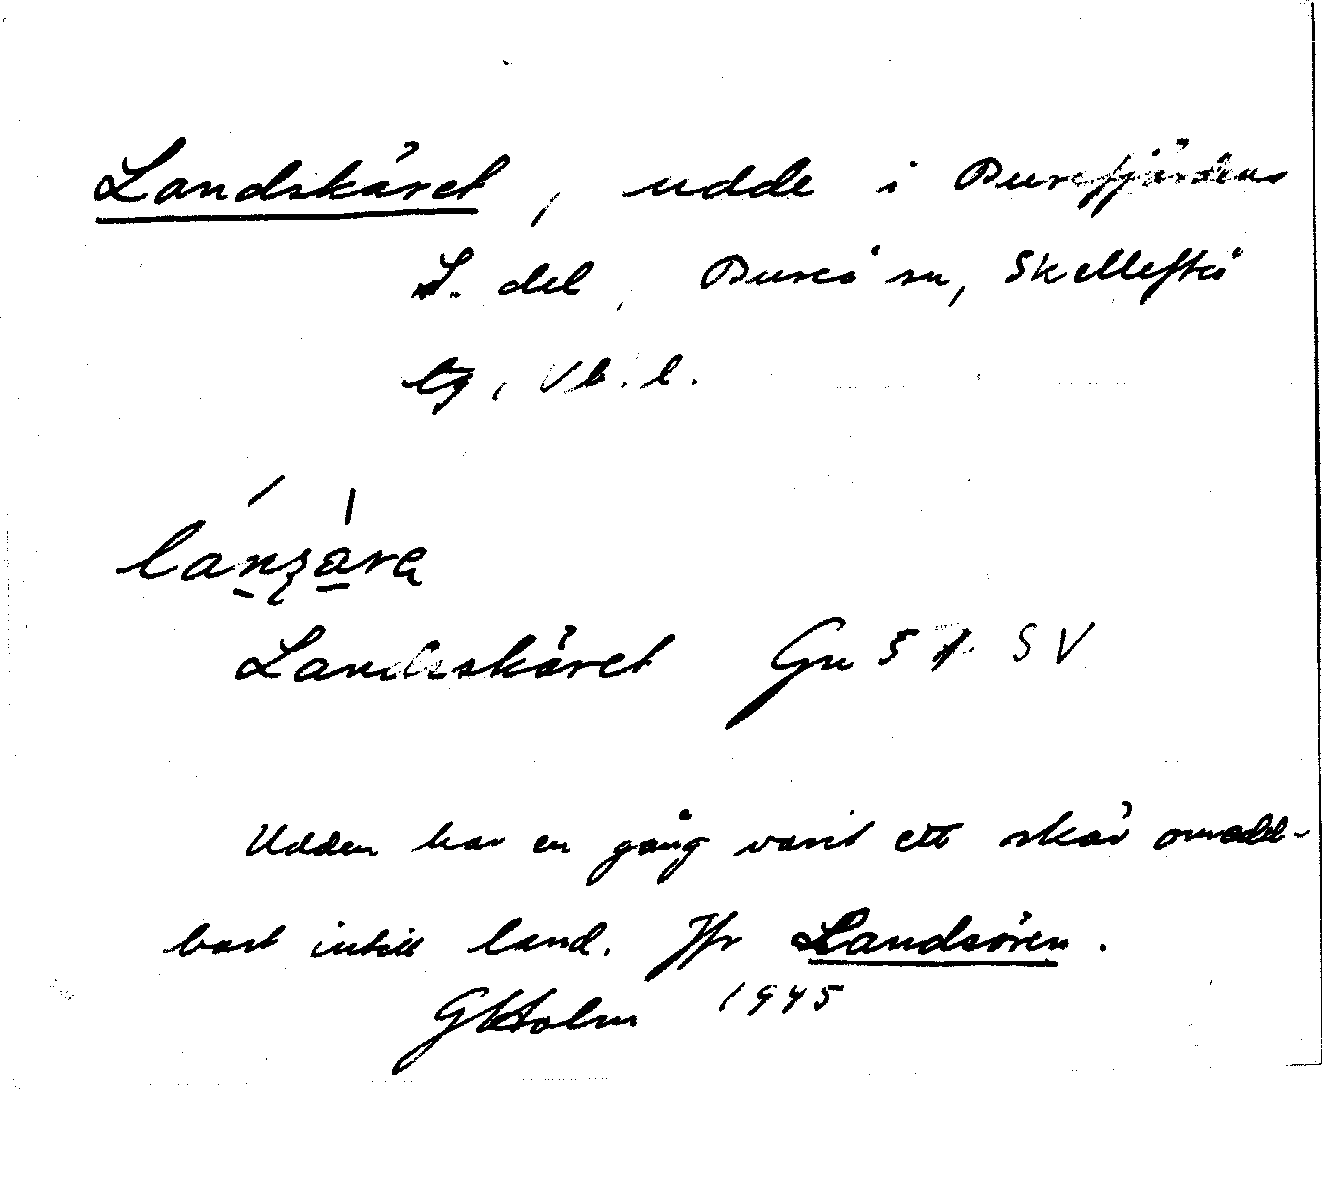 Landskäret, udde i Burefjärdens
S. del, Bureå sn, Skellefteå
tg, Vb. l.
lanzara
Landsskäret Gu 5 SV
Udden har en gång varit ett skär omedel-
bart intill land. Jfr Landsören.
GHolm 1945